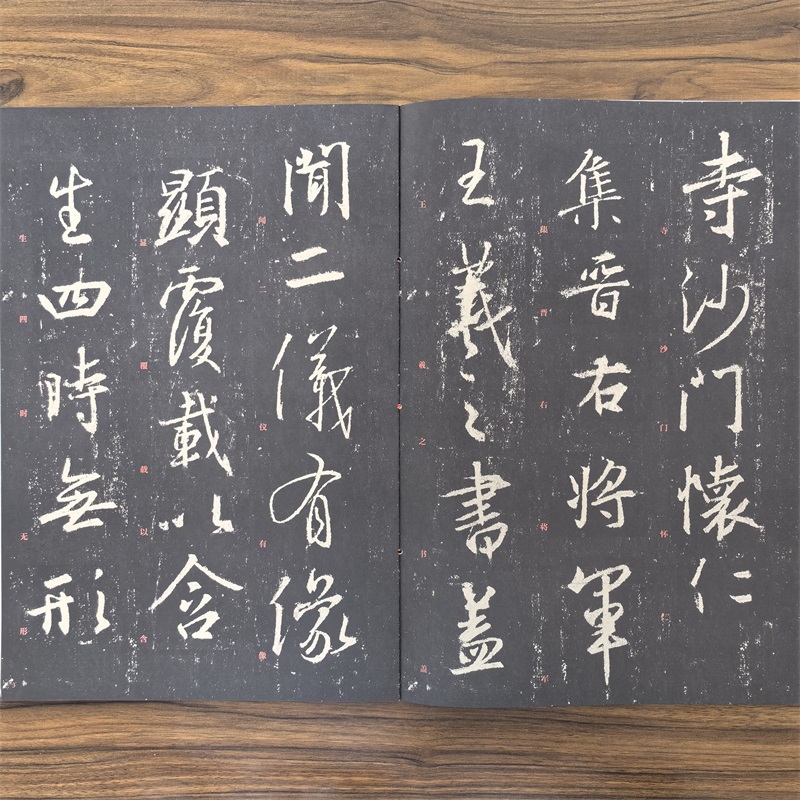 寺沙門懷仁
寺沙门怀仁
集晋右將軍
蕴晋右将军
王羲之書蓋
王羲之书盖
聞二儀有像
闻二仪有像
顯覆載以含
显覆载以含
生四時無形
生四时无形